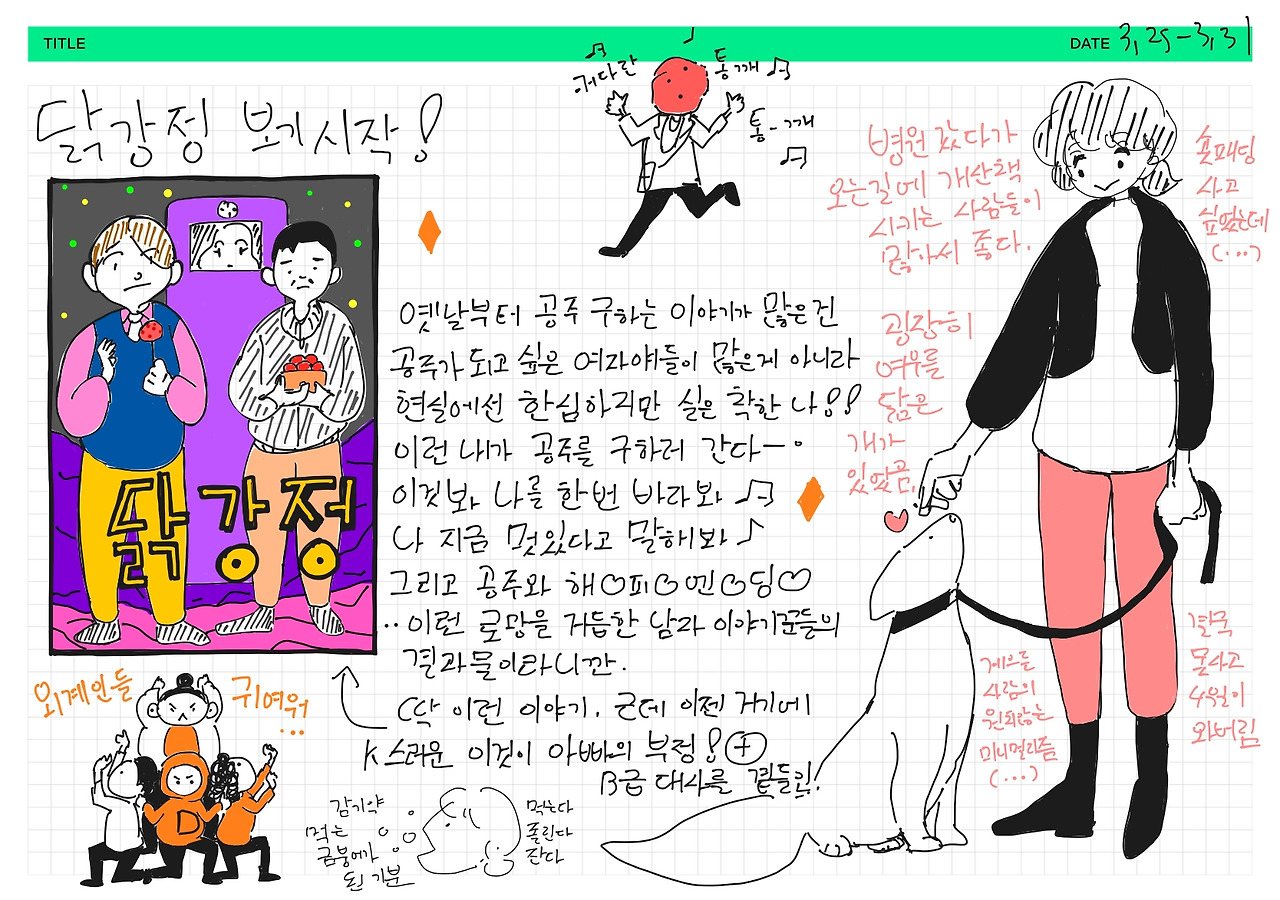 TITLE
DATE 3, 25 - 3, 31
닭강정 보기시작!
커다란
통깨
통-깨
닭강정
옛날부터 공주 구하는 이야기가 많은건
공주가 되고 싶은 여자애들이 많은게 아니라
현실에선 한심하지만 실은 착한 나!!
이런 내가 공주를 구하러 간다ー
이것봐 나를 한번 바라봐
나 지금 멋있다고 말해봐
그리고 공주와 해♡피♡엔♡딩♡
··이런 로망을 거듭한 남자 이야기꾼들의
결과물이라니깐.
딱 이런 이야기. 근데 이젠 거기에
K스러운 이것이 아빠의 부정! +
B급 대사를 곁들린!
병원 갔다가
오는길에 개산책
시키는 사람들이
많아서 좋다.
굉장히
여우를
닮은
개가
있었곰,
숏패딩
사고
싶었는데
(...)
결국
못사고
4월이
와버림
게으름
사람의
원치않는
미니멀리즘
(...)
외계인들
귀여워
...
감기약
먹는
금붕어가
된 기분
먹는다
졸린다
잔다
D